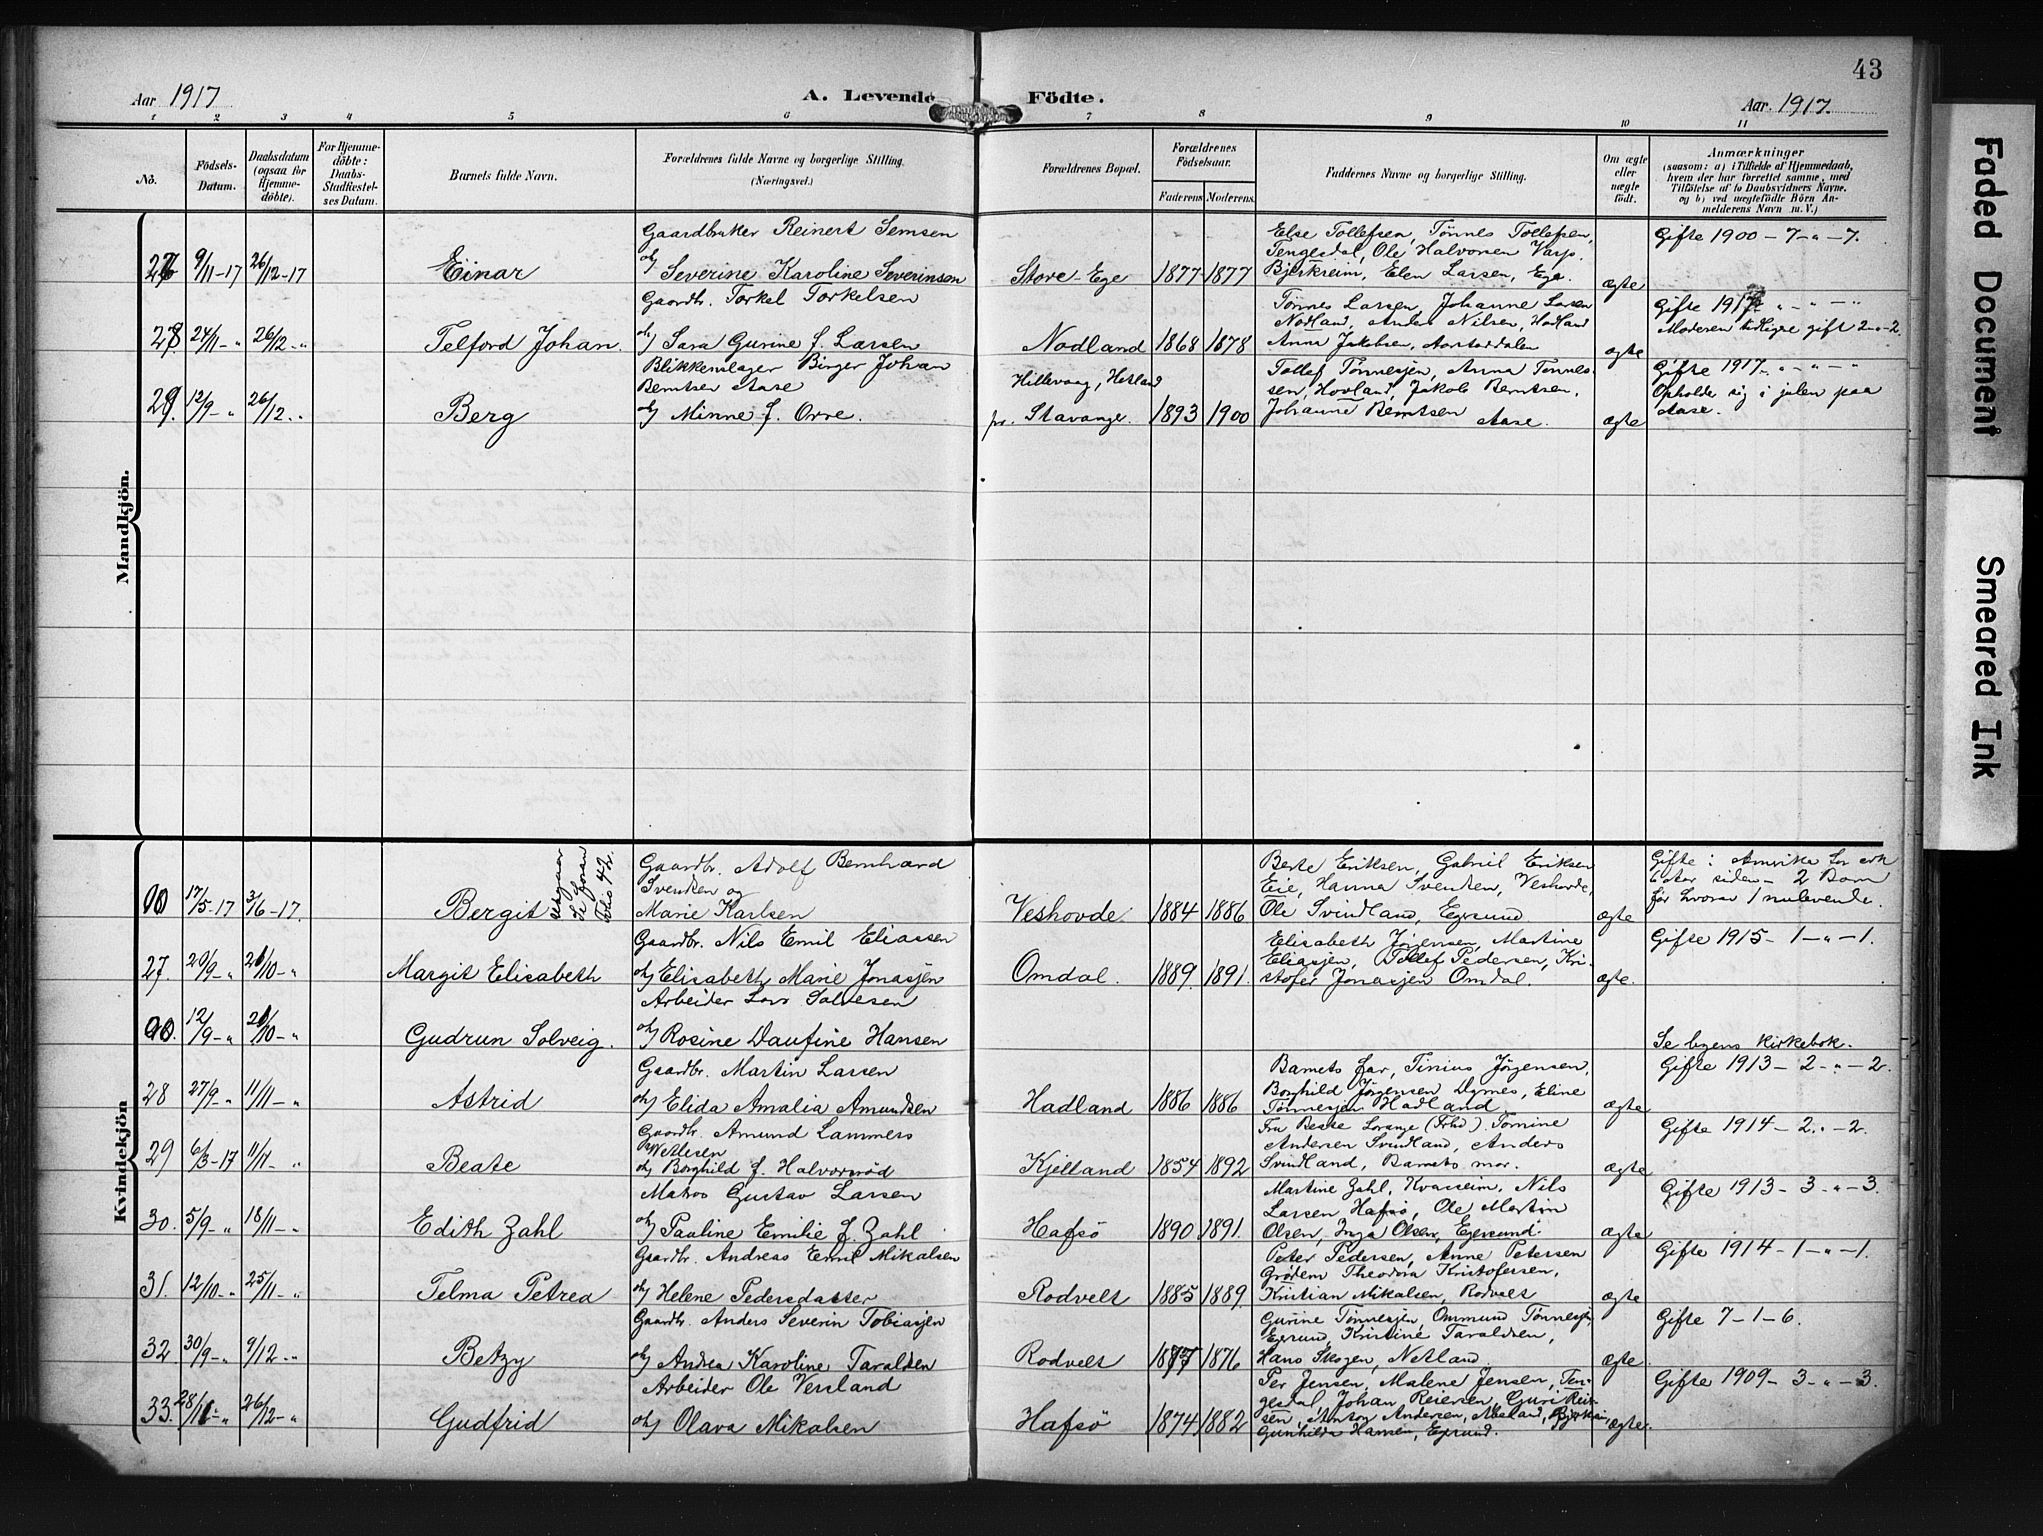 43
Aar 1917
A. Levende Födte.
Aar. 1917.
1 2 3 4 5 6 7 8 9 10 11
No.
Födsels-Datum.
Daabsdatum (ogsaa for Hjemme-döbte).
For Hjemme-döbte: Daabs-Stadfæstel-ses Datum.
Barnets fulde Navn.
Forældrenes fulde Navne og borgerlige Stilling.
(Næringsvei.)
Forældrenes Bopæl.
Forældrenes Födselsaar.
Faderens Moderens
Faddernes Navne og borgerlige Stilling.
Om ægte eller uægte födt.
Anmærkninger
(saasom: a) i Tilfælde af Hjemmedaab,
hvem der har forrettet samme, med
Tilföielse af to Daabsvidners Navne,
og b) ved uægtefödte Börn An-
melderens Navn m. V.)
Mandkjön.
Gaardbruker Reinert Semsen
27 9/11-17 26/12-17 Einar
og Severine Karoline Severinsen
Store-Ege 1877 1877
Else Tollefsen, Tønnes Tollefsen,
Tengesdal, Ole Halvorsen Varp.
Bjerkreim, Elen Larsen, Ege.
ægte
Gifte 1900 - 7 - „ - 7.
Gaardbr. Torkel Torkelsen
28. 24/11 - „ 26/12 - „ Telford Johan.
og Sara Gurine f. Larsen
Nodland 1868 1878
Tønnes Larsen, Johanne Larsen
Nodland, Anders Nilsen, Hodland
Anna Jakobsen, Aarstaddalen
ægte
Gifte 1917 - „ - „
Moderen tidligre gift 2-„-2.
Blikkenslager Birger Johan
Berntsen Aase
29. 12/9 - „ 26/12 - „ Berg
og Minne f. Orre.
Hillevaag, Hetland
pr. Stavanger. 1893 1900
Tollef Tønnesen, Anna Tønnes-
sen, Hovland, Jakob Berntsen,
Johanne Berntsen Aase.
ægte
Gifte 1917 - „ - „
Opholder sig i julen paa
Aase.
Kvindekjön
Gaardbr. Adolf Bernhard
Svendsen og
17/5-17 3/6-17. Bergit
Folio 42.
Marie Karlsen
Veshovde 1884 1886
Berte Eriksen, Gabriel Eriksen
Eie, Hanna Svendsen, Veshovde,
Ole Svindland, Egersund
ægte
Gifte i Amerika for ca
6 aar siden - 2 Barn
før hvorav 1 nulevende.
Gaardbr. Nils Emil Eliassen
27. 20/9 - „ 21/10 - „ Margit Elisabeth
og Elisabeth Marie Jonassen
Omdal. 1889. 1891.
Elisabeth Jørgensen, Martine
Eliassen, Tollef Pedersen, Kri-
stofer Jonassen Omdal.
ægte.
Gifte 1915 - 1 - „ - 1.
Arbeider Lars Salvesen
12/9 - „ 21/10 - „ Gudrun Solveig.
og Rosine Daufine Hansen
Se byens Kirkebok.
Gaardbr. Martin Larsen
28 27/9 - „ 11/11 - „ Astrid
og Elida Amalia Amundsen
Hadland 1886 1886
Barnets far, Tinius Jørgensen,
Borghild Jørgensen, Dyrnes, Eline
Tønnesen Hadland
ægte
Gifte 1913 - 2 - „ - 2.
Gaardbr. Amund Lammers
29 6/3-17 11/11 - „ Beate
og Borghild f. Halvorsrød
Kjelland 1854 1892
Fru Beate Lorange (Frhd). Tomine
Andersen Svindland, Anders
Svindland, Barnets mor.
ægte
Gifte 1914 - 2 „ - 2.
Matros Gustav Larsen
30. 5/9 - „ 18/11 - „ Edith Zahl
og Pauline Emilie f. Zahl
Hafsö 1890 1891.
Martine Zahl, Kvasseim, Nils
Larsen Hafsö, Ole Martin
Olsen, Inga Olsen, Egersund.
ægte
Gifte 1913 - 3 - „ - 3.
Gaardbr. Andreas Emil Mikalsen
31. 12/10 - „ 25/11 - „ Telma Petrea
og Helene Pedersdatter
Rodvelt 1885 1889.
Peter Pedersen, Anne Petersen
Grødem Theodora Kristofersen,
Kristian Mikalsen, Rodvelt
ægte
Gifte 1914 - 1 - „ - 1.
Gaardbr. Anders Severin Tobiassen
32 30/9 - „ 9/12 - „ Betzy
og Andrea Karoline Taraldsen
Rodvelt 1877 1876
Gurine Tønnesen, Ommund Tønnesen,
Egersund, Kristine Taraldsen,
Hans Skogen, Netland
ægte.
Gifte 7 - 1 - 6.
Arbeider Ole Versland
33. 28/11 - „ 26/12 - „ Gudfrid
og Olava Mikalsen
Hafsö 1874 1882
Per Jensen, Malene Jensen, Ten-
gesdal Johan Reiersen, Guri Reier-
sen, Anton Andersen,
Gunhilda Hansen, Egersund.
ægte.
Gifte 1909 - 3 - „ - 3.
Faded Document
Smeared Ink